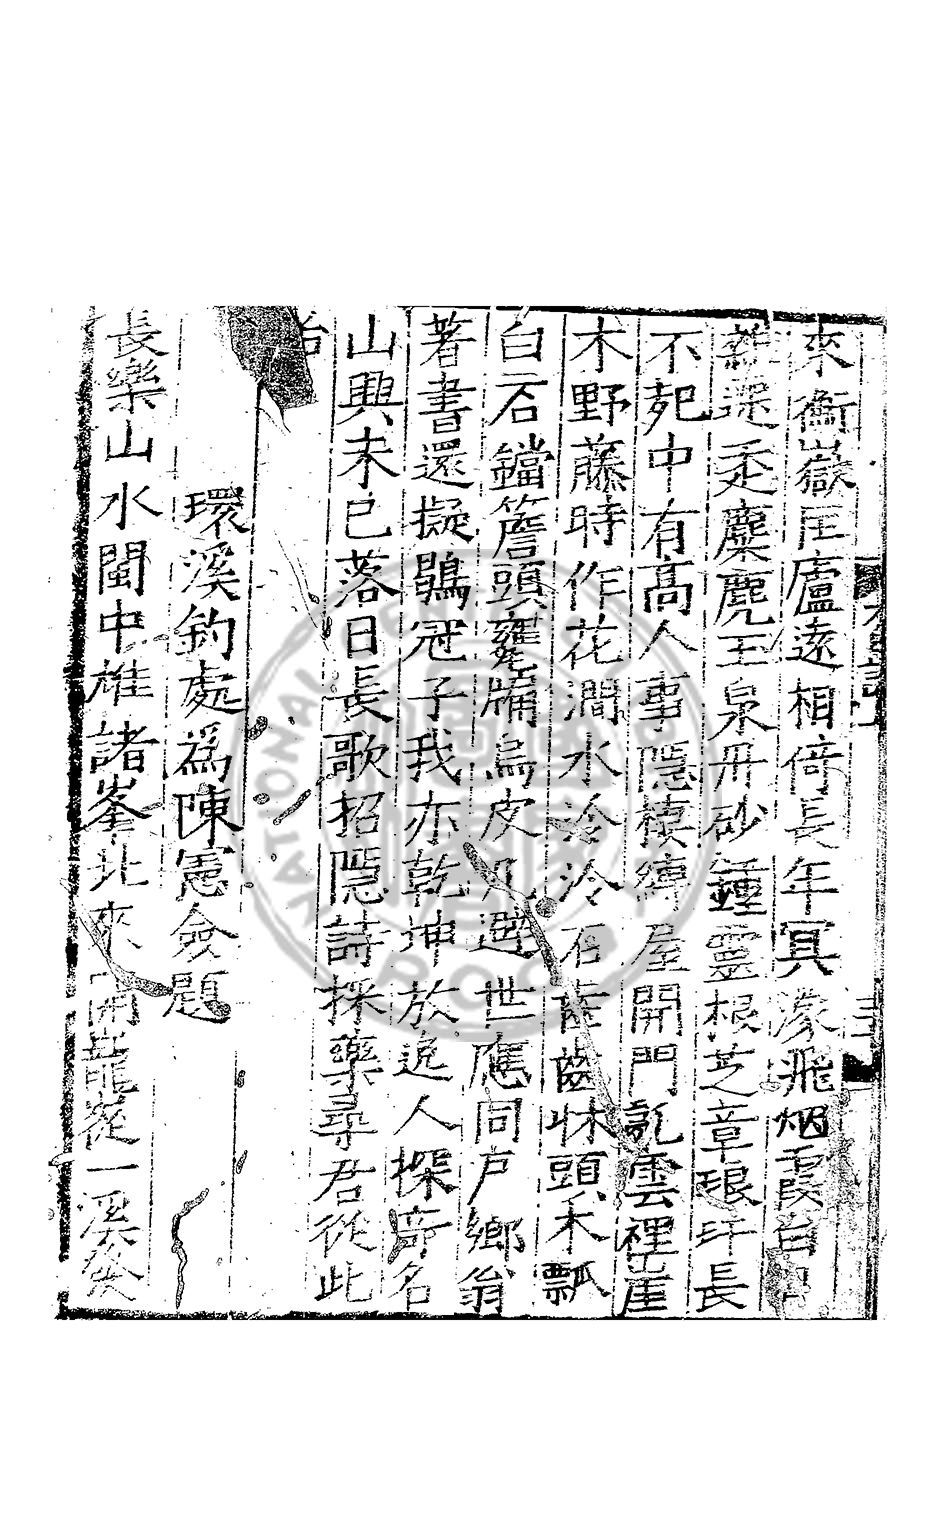 來衡嶽匡廬遠相倚長年冥濛飛烟霞
還 麋鹿王泉丹砂鍾靈根芝章琅玕長
不死中有高人事隱棲縛屋開門 雲裡崖
木野藤時作花澗水泠泠石 齒牀頭禾瓢
白石鐺簷頭甕牖烏皮几避世應同戶鄉翁
著書還擬鶡冠子我亦乾坤放逸人探奇名
山興未已落日長歌招隱詩採藥尋君從此
始
環溪釣處為陳憲僉題
長樂山水閩中雄諸峯北來開龍從一溪發